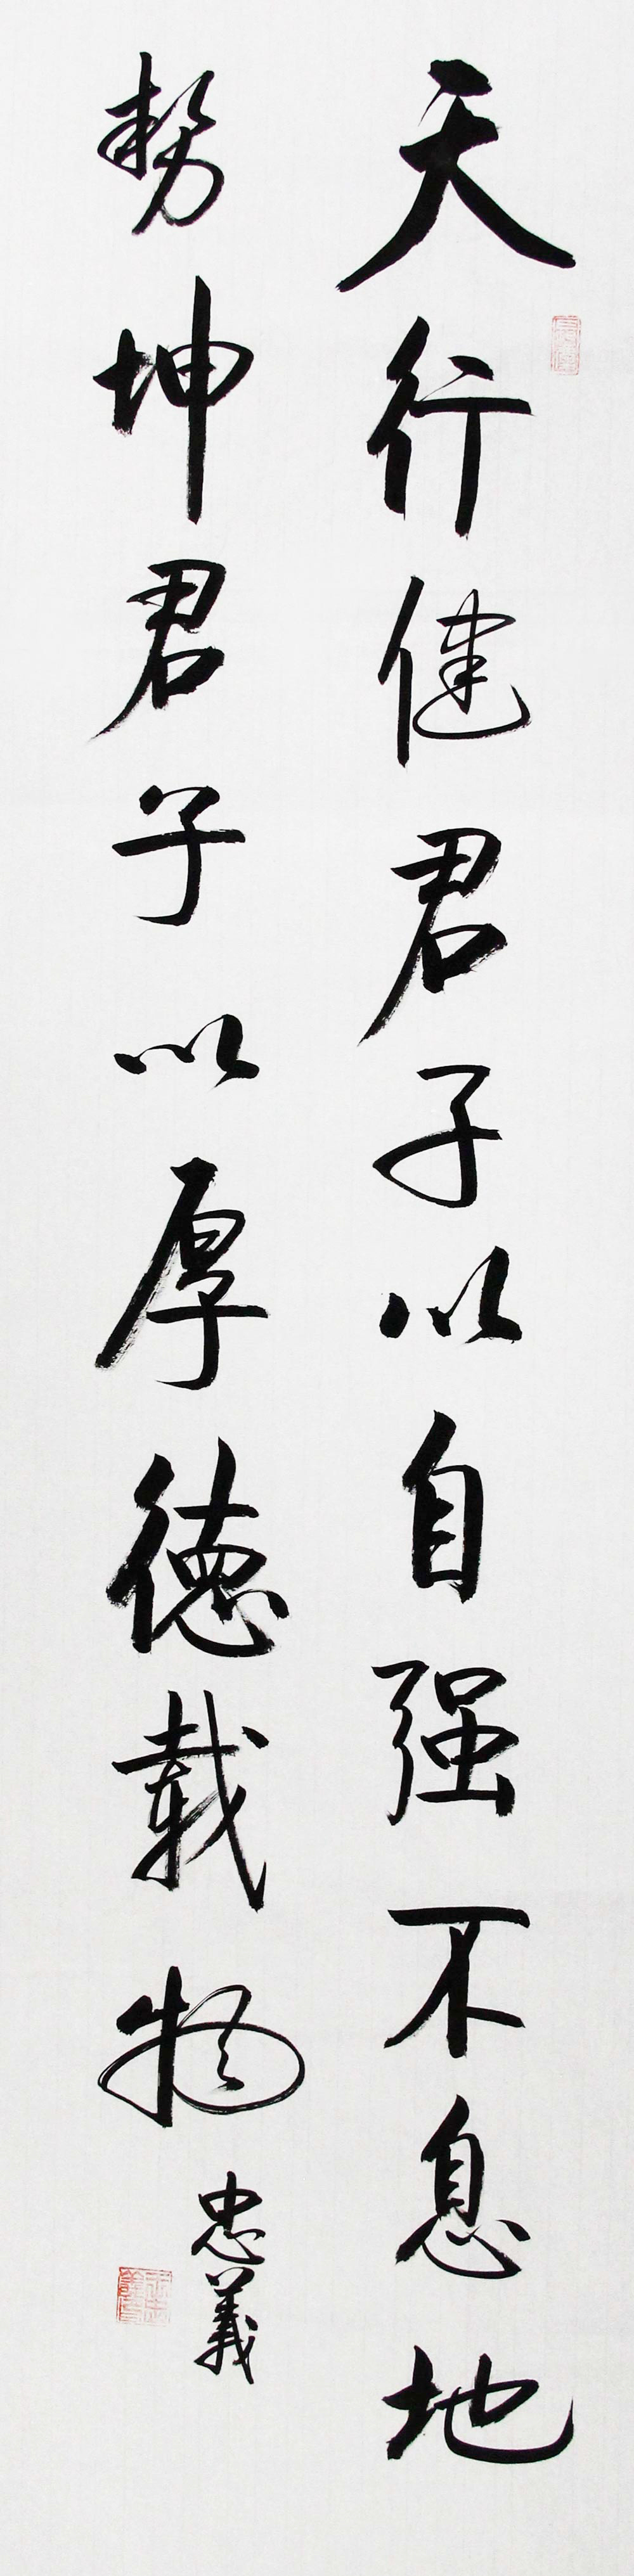 天行健君子以自强不息地
勢坤君子以厚德載物
忠義